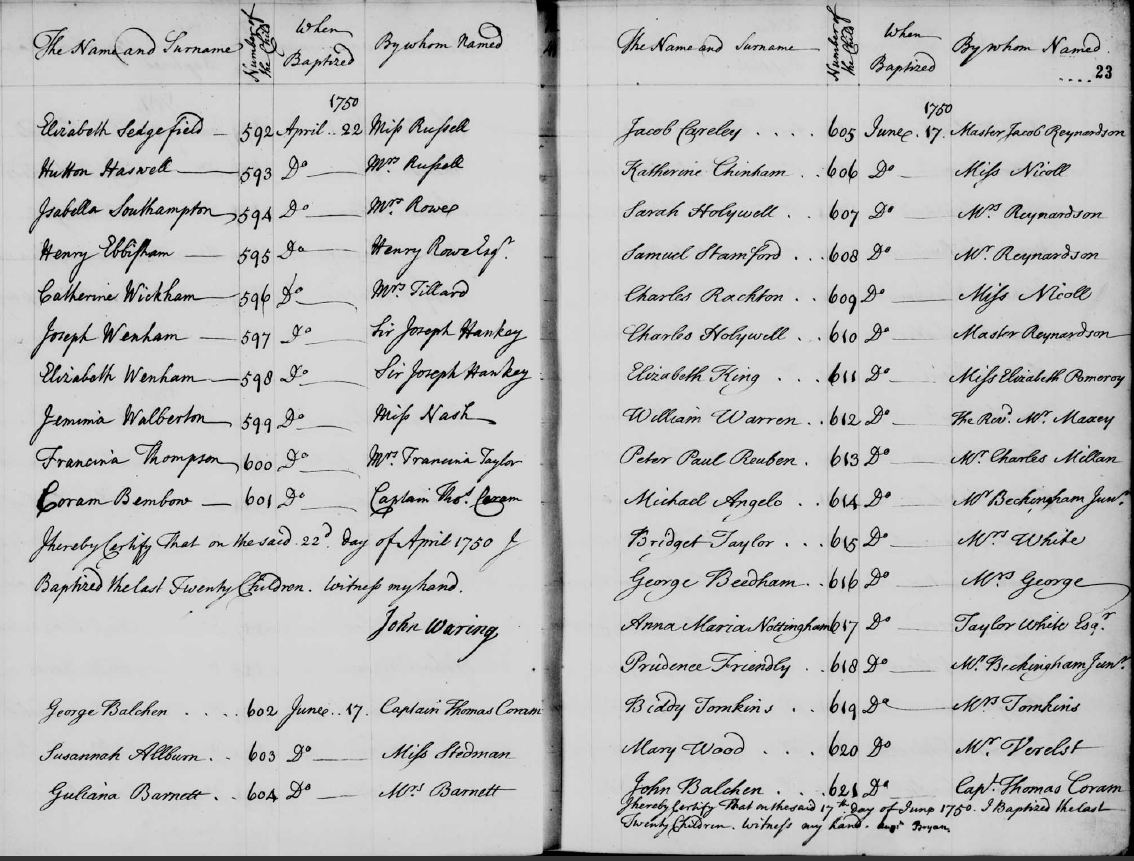 The Name and Surname Number of the Child When Baptized By whom Named
1750
Elizabeth Sedgefield 592 April .. 22 Miss Russell
Hutton Haswell 593 Do Mrs Russell
Isabella Southampton 594 Do Mrs Rowe
Henry Ebbisham 595 Do Henry Rowe Esqr.
Catherine Wickham 596 Do Mrs Tillard
Joseph Wenham 597 Do Sir Joseph Hankey
Elizabeth Wenham 598 Do Sir Joseph Hankey
Jemima Walberton 599 Do Miss Nash
Francina Thompson 600 Do Mrs Francina Taylor
Coram Bembow 601 Do Captain Thos. Coram
I hereby Certify That on the said 22d. day of April 1750 I
Baptized the last Twenty Children. Witness my hand.
John Waring
George Balchen .... 602 June .. 17. Captain Thomas Coram
Susannah Allburn .. 603 Do Miss Stedman
Guliana Barnett .. 604 Do Mrs Barnett
The Name and Surname Number of the Child When Baptized By whom Named.
.... 23
1750
Jacob Careley .... 605 June . 17. Master Jacob Reynardson
Katherine Chinham .. 606 Do Miss Nicoll
Sarah Holywell .. 607 Do Mrs Reynardson
Samuel Stamford .. 608 Do Mr. Reynardson
Charles Rackton .. 609 Do Miss Nicoll
Charles Holywell .. 610 Do Master Reynardson
Elizabeth King ... 611 Do Miss Elizabeth Pomeroy
William Warren .. 612 Do The Revd. Mr. Maxey
Peter Paul Reuben . 613 Do Mr. Charles Millan
Michael Angelo .. 614 Do Mr Beckingham Junr.
Bridget Taylor ... 615 Do Mrs White
George Beedham .. 616 Do Mrs George
Anna Maria Nottingham 617 Do Taylor White Esqr.
Prudence Friendly .. 618 Do Mr. Beckingham Junr.
Biddy Tomkins .. 619 Do Mrs Tomkins
Mary Wood .... 620 Do Mr. Verelst
John Balchen .... 621 Do Capt. Thomas Coram
I hereby Certify That on the said 17th day of June 1750. I Baptized the last
Twenty Children. Witness my hand. Bryan